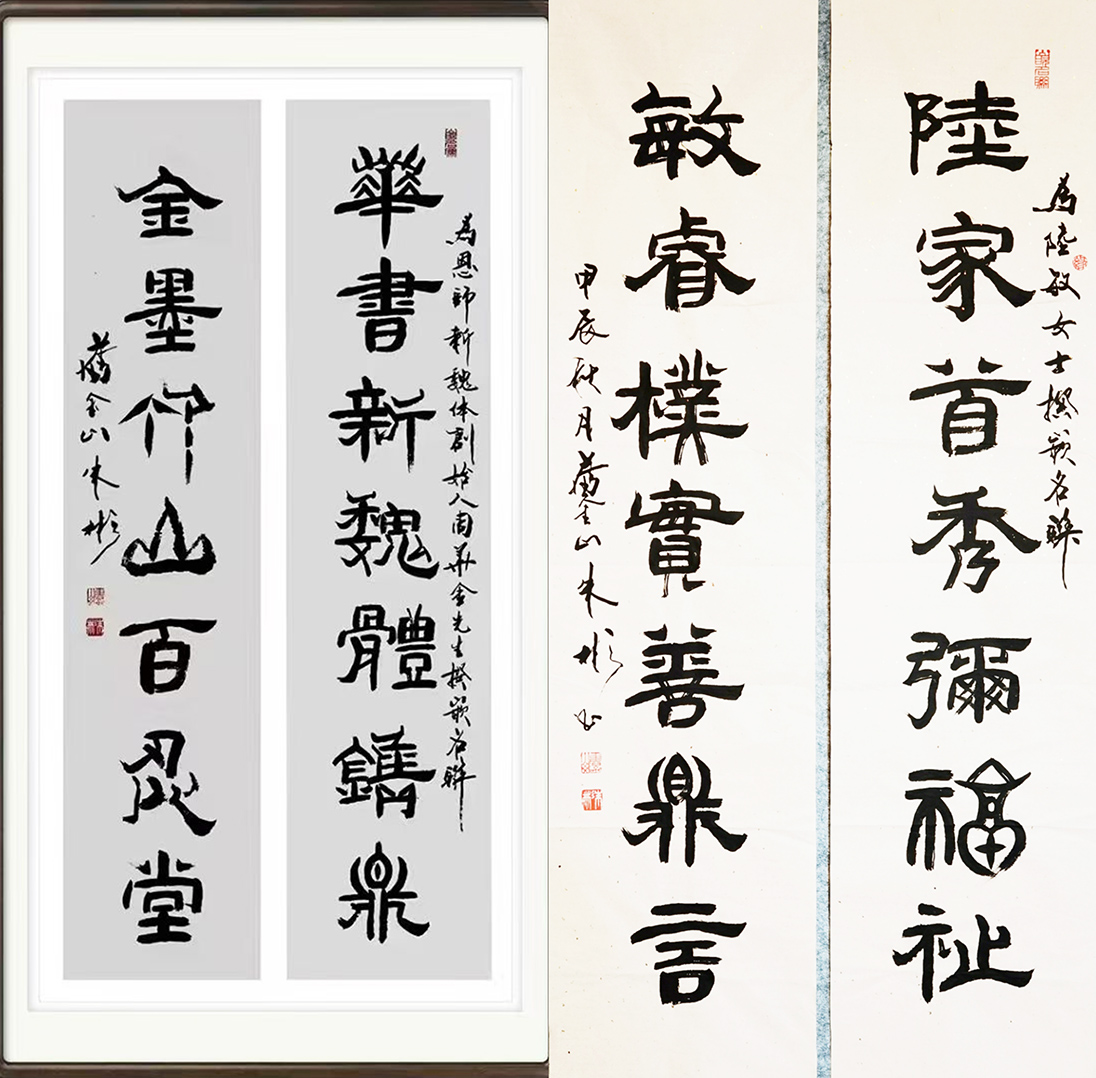 華書新魏體鐫鼎
為恩師新魏体創始人周華金先生撰嵌名聯
金墨竹山百忍堂
舊金山朱彬
陸家首秀彌福祉
為陸敏女士撰嵌名聯
敏睿樸實善鼎言
甲辰秋月舊金山朱彬书